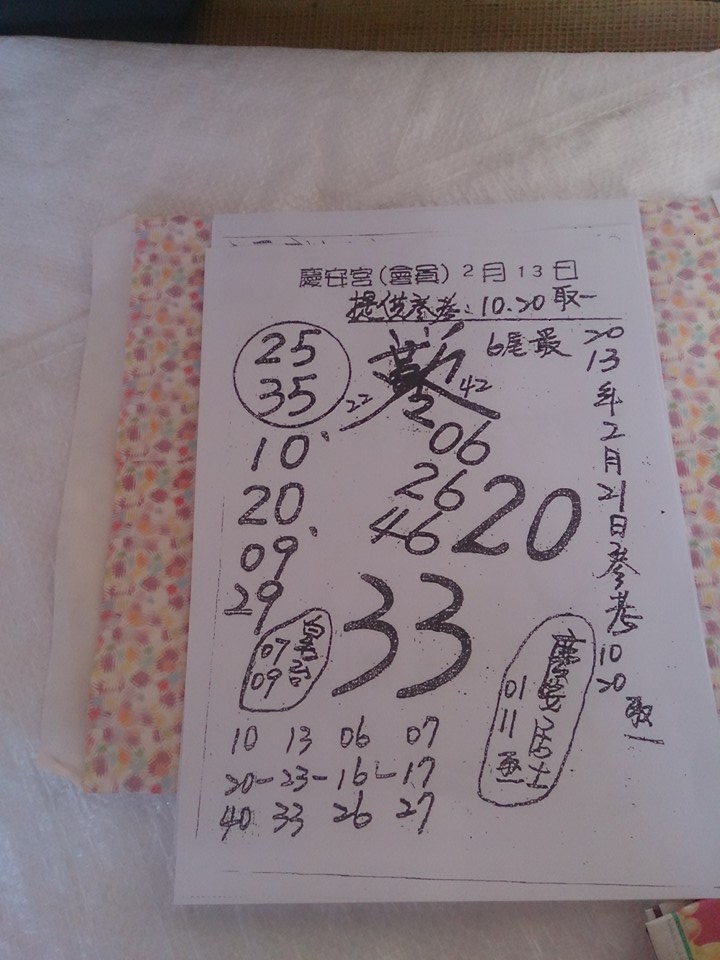 慶安宮(會員)2月13日
提供參考:10.20取一
25
35
22
42
6尾最
10
20
09
29
06
26
46
20
33
07
09
2013年2月21日參考10 20取一
慶安居士
01
11
10 13 06 07
20-23-16-17
40 33 26 27